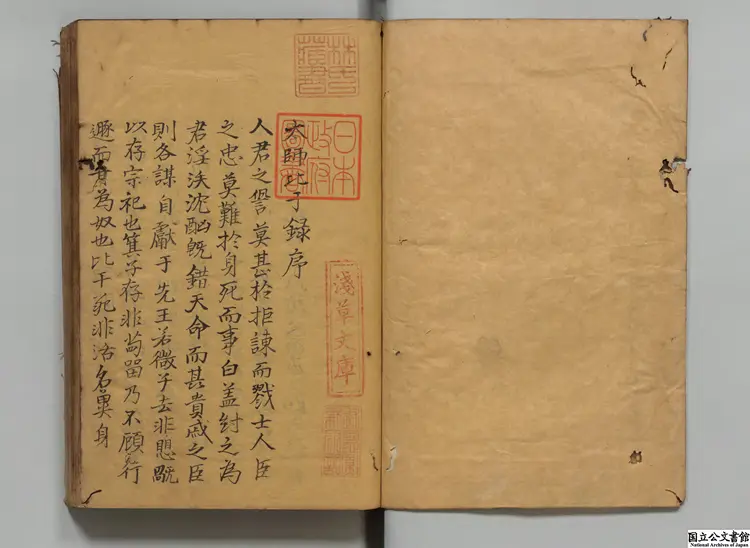 太師比干録序
人君之咎莫甚於拒諫而戮士人臣
之忠莫難於身死而事白盖紂之為
君淫泆沈酗既錯天命而甚貴戚之臣
則各謀自獻于先王若微子去非思
以存宗祀也箕子存非苟留乃不顧行
遯而甚為奴也比干死非沽名異身
林氏藏書
日本政府圖書
淺草文庫
国立公文書館
National Archives of Japan